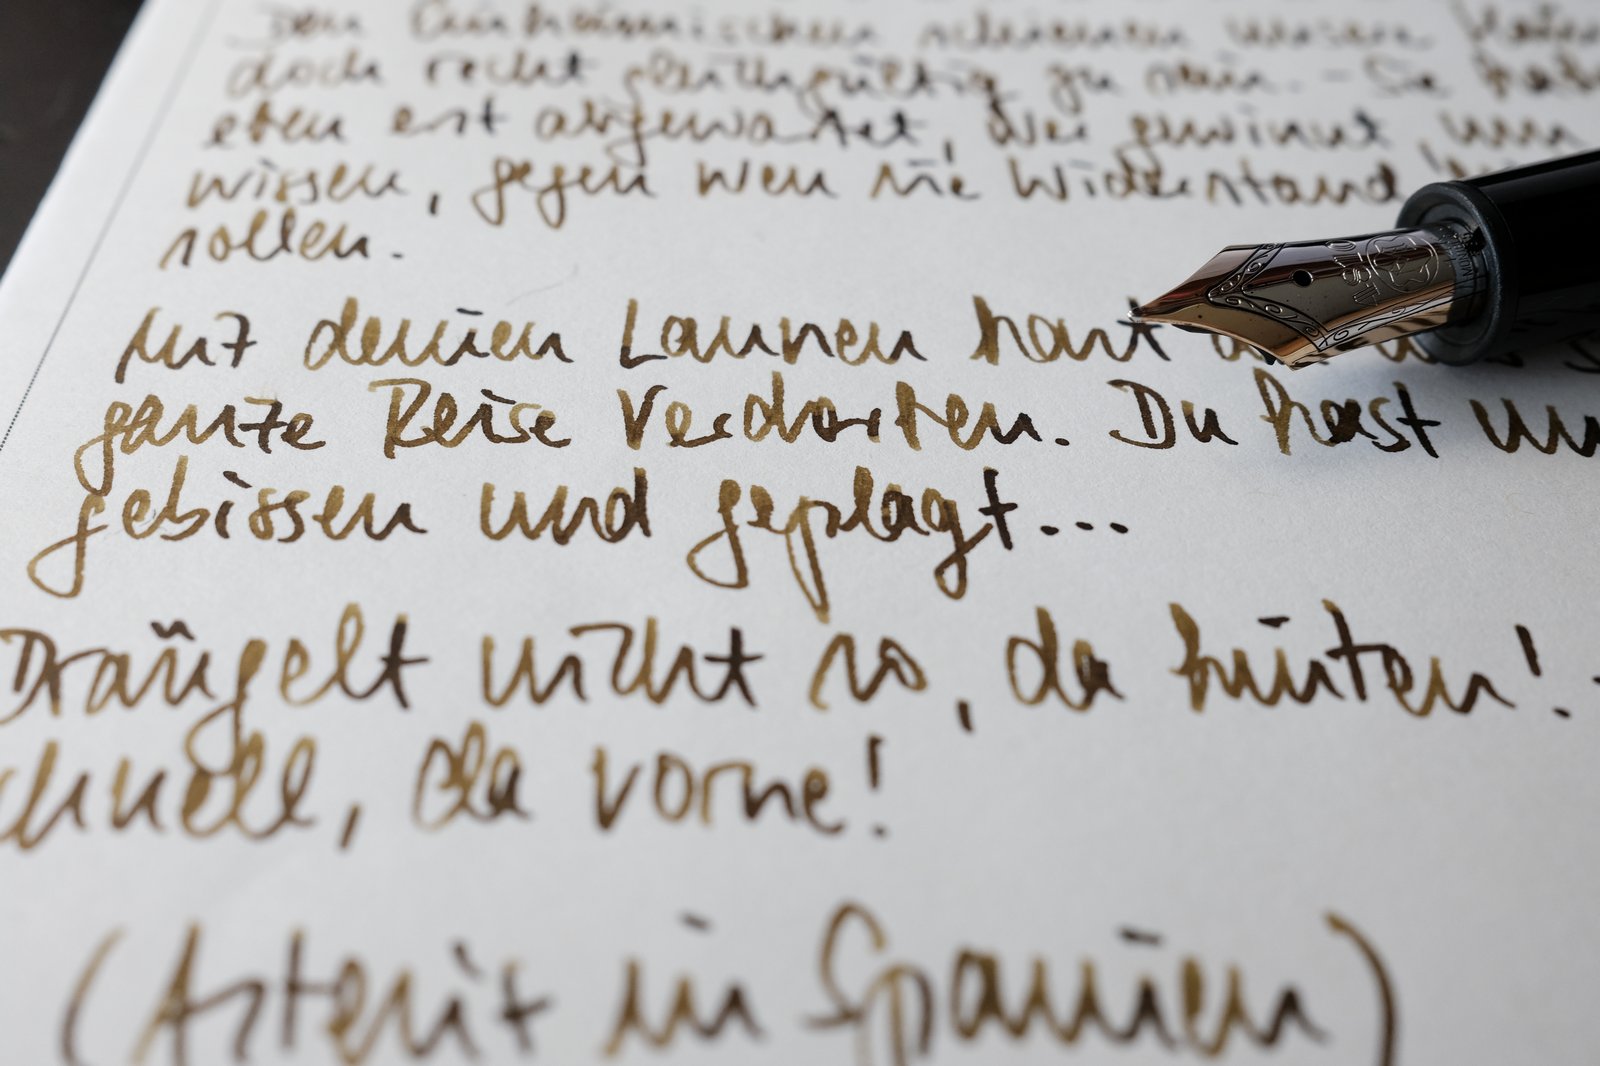 Den Einheimischen scheinen unsere
doch recht gleichgültig zu sein. - Sie
eben erst abgewartet, wer gewinnt, um
wissen, gegen wen sie Widerstand
sollen.
Mit deinen Launen hast
ganze Reise verdorben. Du hast
gebissen und geplagt...
Drängelt nicht so, da hinten! -
chnell, da vorne!
(Asterix in Spanien)